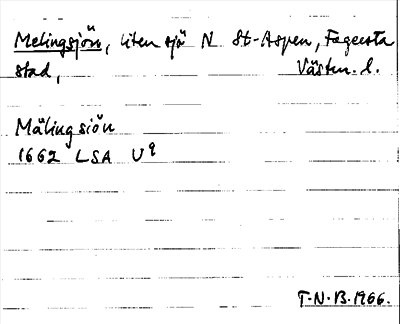 Melingsjön, liten sjö N St-Aspen, Fagersta
stad, Västm. l.
Mälingsiön
1662 LSA U9
T.N.B. 1966.